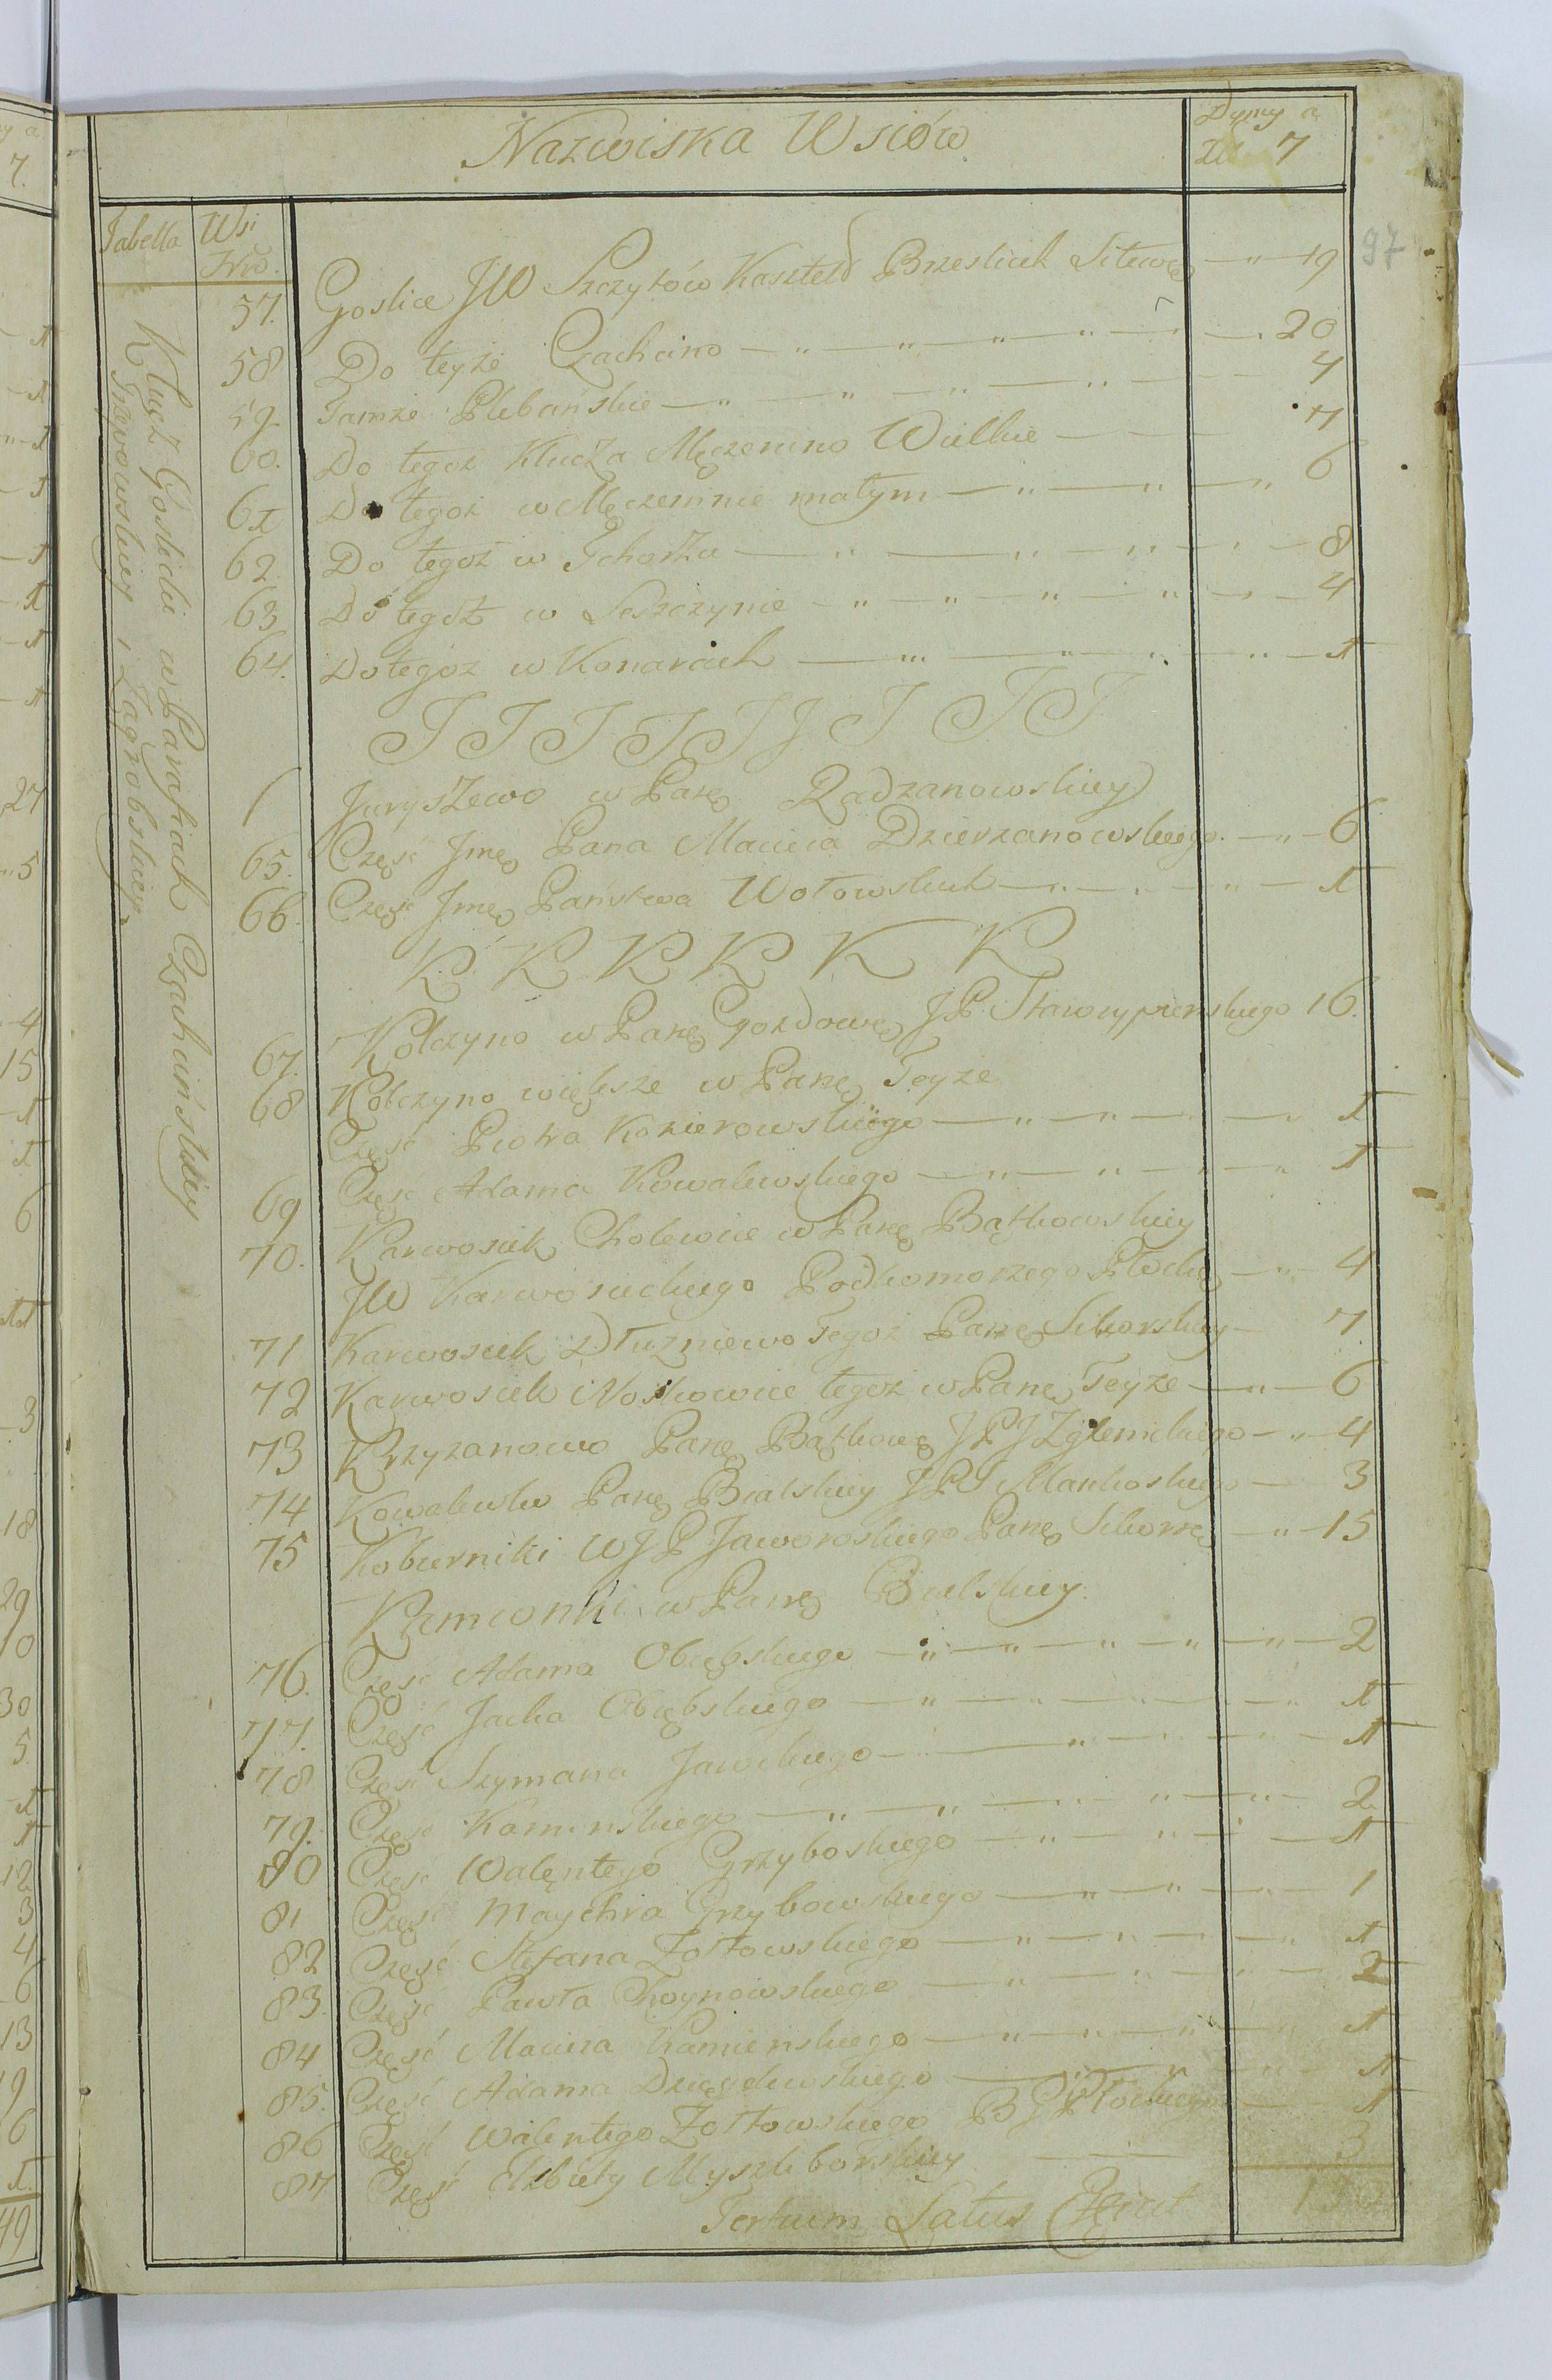 Nazwiska Wsiów
Dymy a
Zł 7
97
Tabella
Wsi
Nro.
Klucz Goślicki w Parafiach Czachcińskiey
Trzepowskiey i Zagrobskiey
57. Goslice JW Szczytów Kasztelō Brzeskich Litew 19
58 Do teyże Czachcino 20
59. Tamże Plebańskie 4
60. Do tegoż Klucza Męczenino Wielkie 7
61 Do tegoż w Męczeninie małym 6
62. Do tegoż w Tchorza 8
63 Do tegoż w Leszczynie 4
64. Do tegoż w Konarach 1
J J J J J J J J J
Juryszewo w Parę Radzanowskiey
65. Część Jmę Pana Macieia Dzierzanowskiego 6
66. Część Jmę Państwa Wołowskich 1
K K K K K K
67. Kolczyno w Parę Gozdowę JP 16.
68 Kolczyno większe w Parę Teyze
Część Piotra Kozierowskiego 1
69 Część Adama Kowalewskiego 1
70. Karwosiek Cholewice w Parę Bątkowskiey
JW Karwosieckiego Podkomorzego Płockę 4
71 Karwosiek Dłuzniewo Tegoż Parę Sikorskiey 7
72 Karwosiek Noskowice tegoż w Parę Teyze 6
73 Krzyzanowo Parę Bątkowę JPJ Zglenickiego 4
74 Kowalewko Parę Bialskiey JPJ Mańkoskiego 3
75 Kobierniki WJP Jaworoskiego Parę Sikorrę 15
Kamionki w Parę Bialskiey
76. Część Adama Obiębskiego 2
77. Część Jacka Obiębskiego 1
78 Część Szymana Jawckiego 1
79. Część Kaminskiego 2
80 Część Walentego Grzyboskiego 1
81 Część Maychra Grzybowskiego 1
82 Część Stefana Zołtowskiego 1
83. Część Pawła Choynowskiego 2
84 Część Macieia Kamienskiego 1
85. Część Adama 1
86 Część Walentego Zołtowskiego BG Płockiego 1
87 Część Elzbiety Myszliborskiey 3
Tertium Latus Efficit